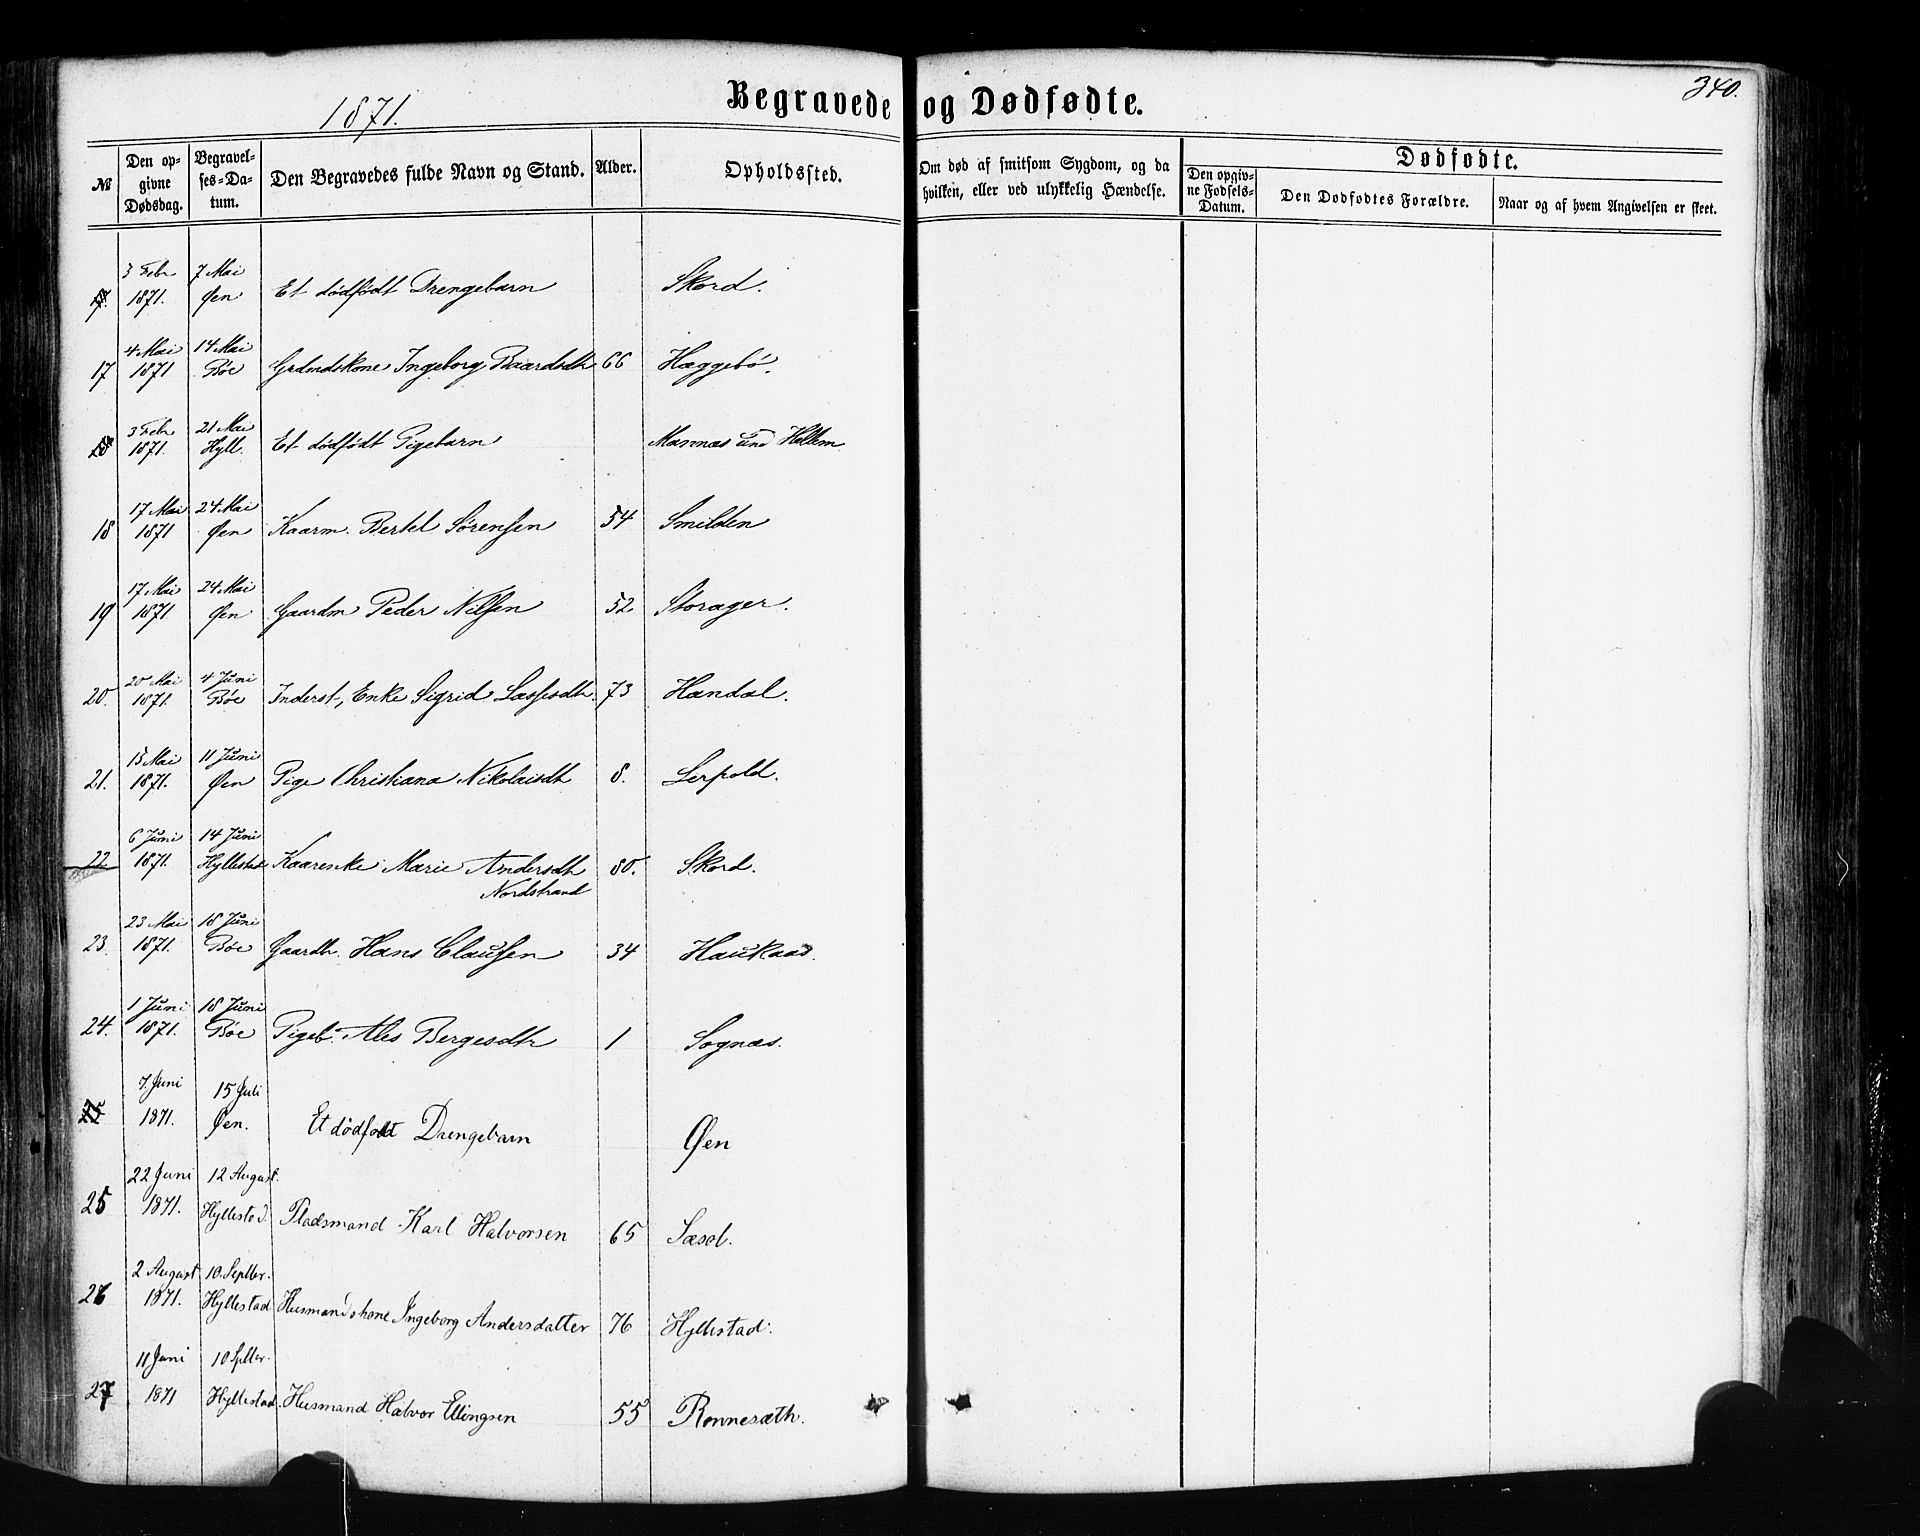 1871.
Begravede og Dødfødte.
340.
№
Den opgivne Dødsdag.
Begravelses-Datum.
Den Begravedes fulde Navn og Stand.
Alder.
Opholdssted.
Om død af smitsom Sygdom, og da hvilken, eller ved ulykkelig Hændelse.
Dødfødte.
Den opgivne Fødsels-Datum.
Den Dødfødtes Forældre.
Naar og af hvem Angivelsen er skeet.
3 Febr 7 Mai
1871. Øen Et dödfödt Drengebarn Skord.
4 Mai 14 Mai
17 1871 Böe Grdmdskone Ingeborg Baardsdtr 66 Hæggebö.
3 Febr 21 Mai
18 1871. Hyll. Et dödfödt Pigebarn Mannæs und Hellem
17 Mai 24 Mai
18 1871 Øen Kaarm. Bertel Sörensen 54 Smilden
17 Mai 24 Mai
19 1871 Øen Gaardm Peder Nilsen 52 Storager.
20 Mai 4 Juni
20. 1871. Böe Inderst, Enke Sigrid Lassesdtr. 73 Handal.
15 Mai 11 Juni
21. 1871. Øen Pige Christiana Nikolaisdtr 8. Lerpold.
6 Juni 14 Juni
22 1871. Hyllestad Kaarenke Marie Andersdtr 80. Skord.
Nordstrand
23 Mai 18 Juni
23. 1871. Böe Gaardbr. Hans Claussen 34 Haukaas.
1 Juni 18 Juni
24. 1871. Böe Pigeb. Ales Bergesdtr 1 Sognæs.
7. Juni 15 Juli
25 1871. Øen. Et dödfodt Drengebarn Øen
22 Juni 12 August.
25 1871. Hyllestad. Pladsmand Karl Halvorsen 65 Sæsol.
2 August 10. Septbr.
26 1871. Hyllestad Husmandskone Ingeborg Andersdatter 76 Hyllestad.
11 Juni 10 Septbr.
27 1871 Hyllestad. Husmand Halvor Ellingsen 55 Rønnesæth.